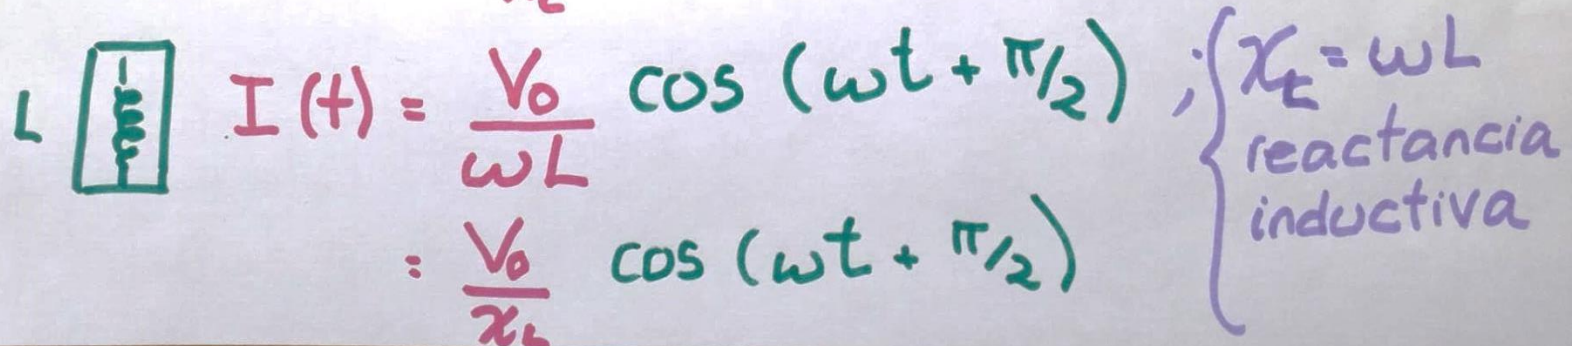 L I(t) = V₀/ωL cos (ωt + π/2) ; { X_L = ωL
reactancia
inductiva
= V₀/X_L cos (ωt + π/2)